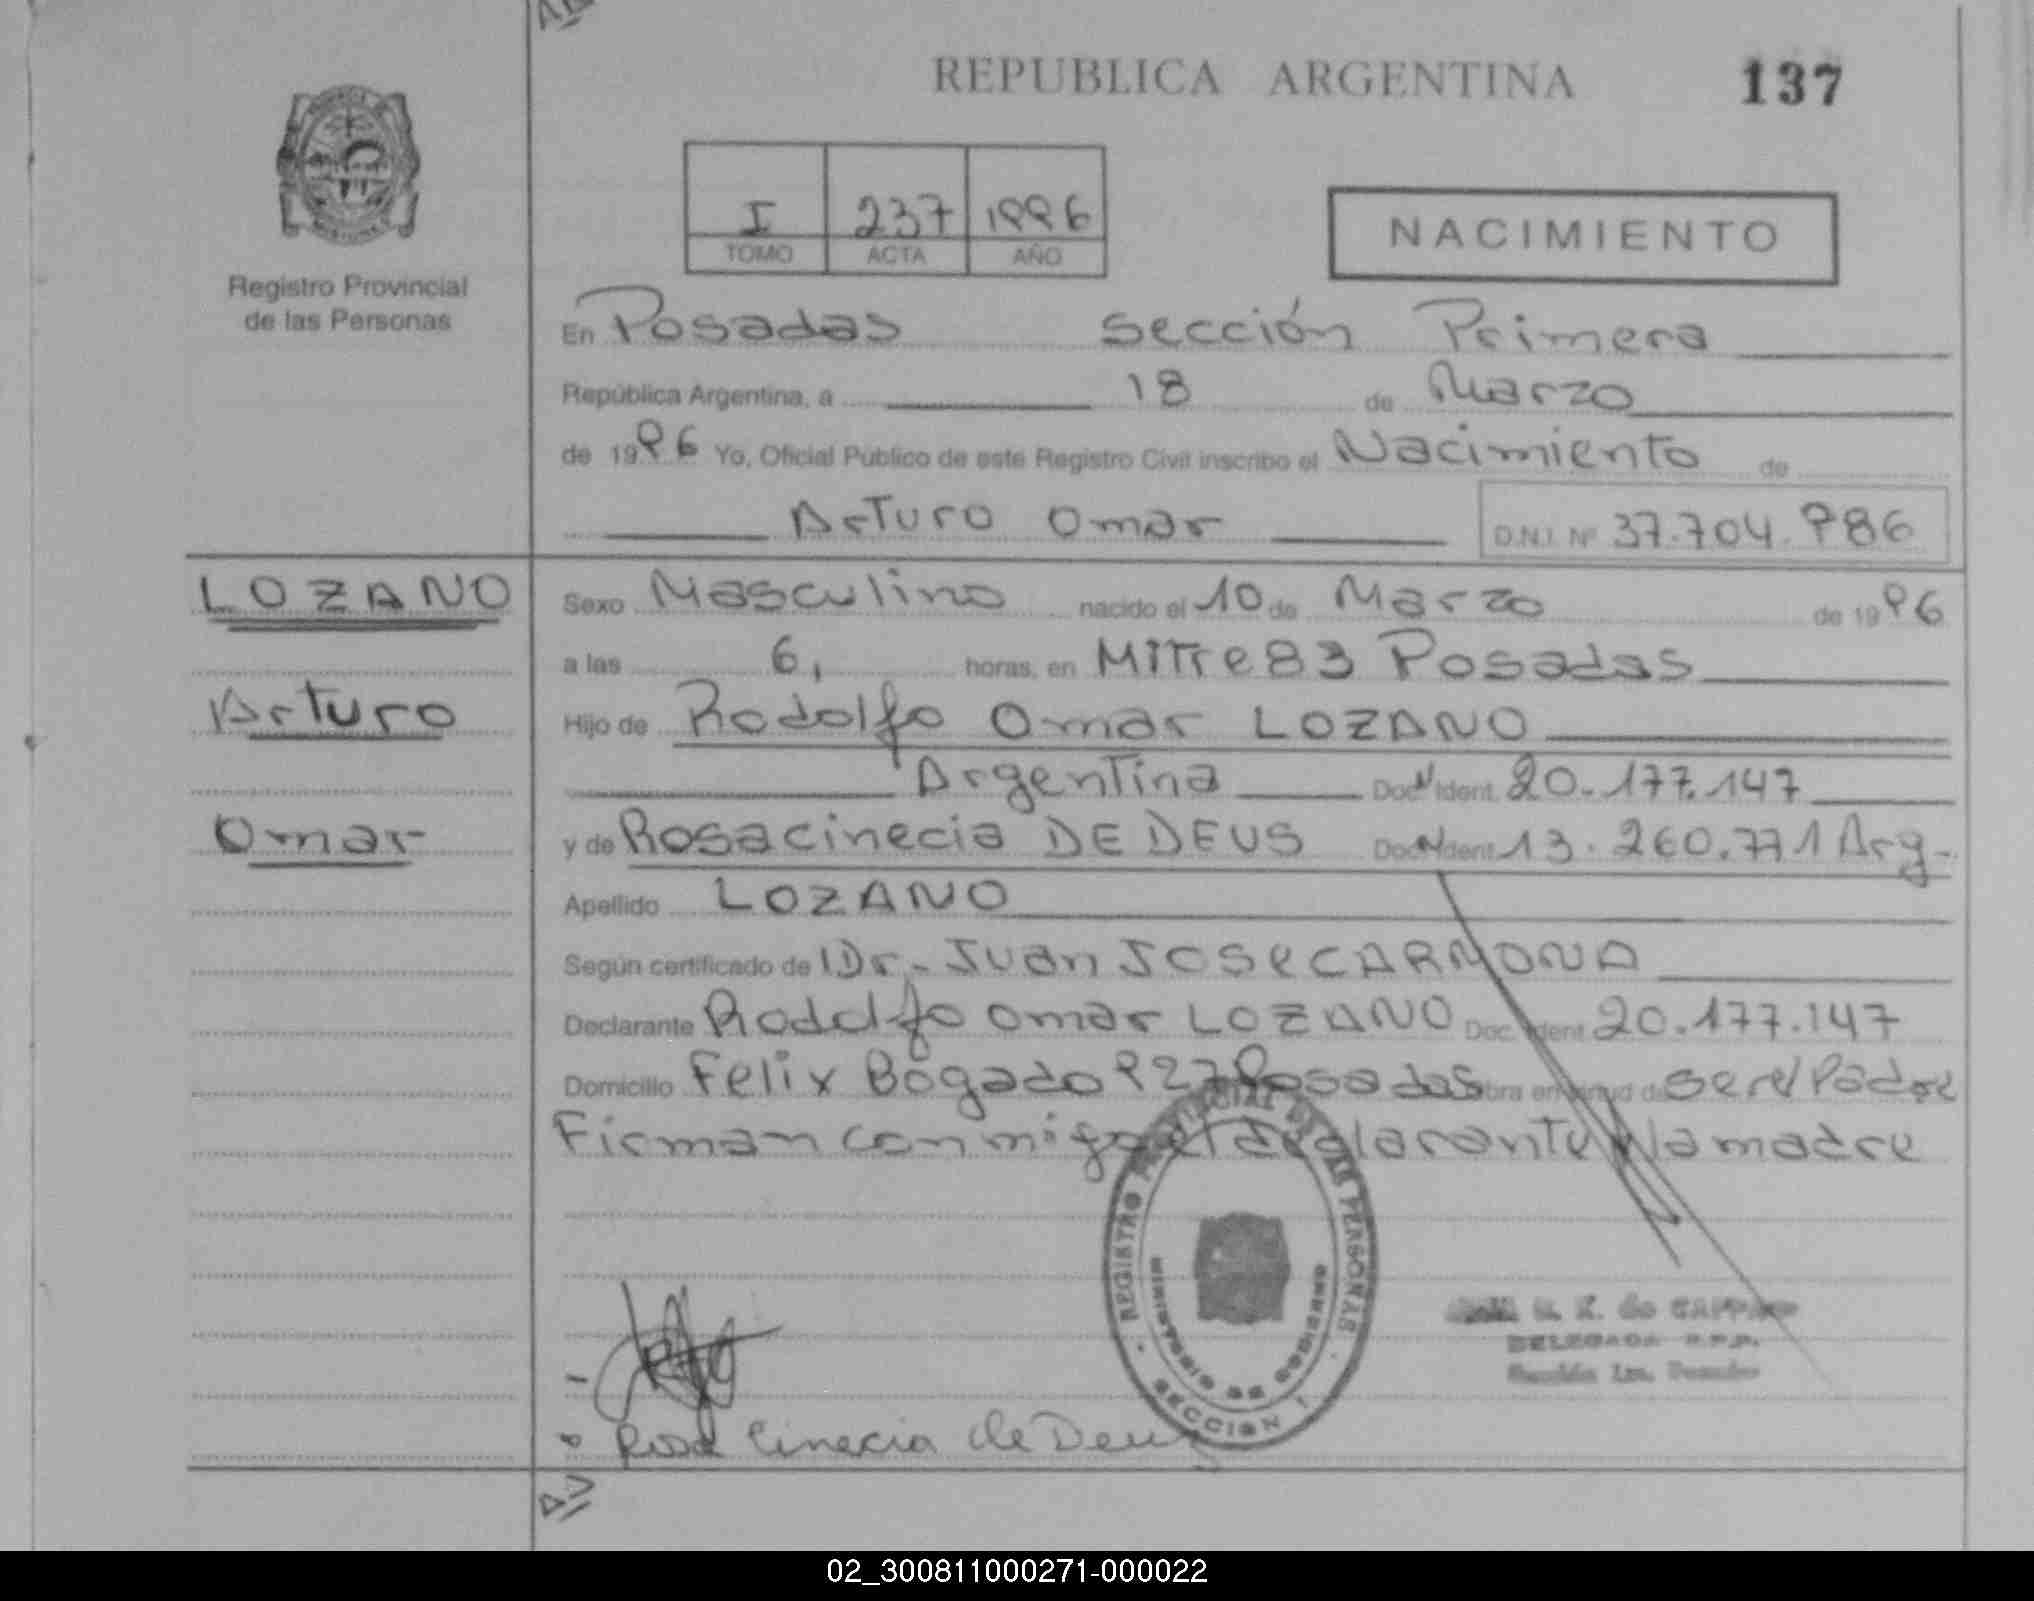 REPUBLICA ARGENTINA
137
I 237 1996
TOMO ACTA AÑO
NACIMIENTO
Registro Provincial
de las Personas
En Posadas Sección Primera
República Argentina, a 18 de Marzo
de 1996 Yo, Oficial Público de este Registro Civil inscribo el Nacimiento de
Arturo Omar D.N.I. Nº 37.704.986
LOZANO
Arturo
Omar
Sexo Masculino nacido el 10 de Marzo de 1996
a las 6, horas, en Mitre 83 Posadas
Hijo de Rodolfo Omar LOZANO
Argentina Doc. Ident. 20.177.147
y de Rosa cinecia DE DEUS Doc. Ident. 13.260.771 Arg.
Apellido LOZANO
Según certificado de Dr. Juan Jose CARMONA
Declarante Rodolfo Omar LOZANO Doc. Ident. 20.177.147
Domicilio Felix Bogado 927 Posadas obra en virtud de ser el Padre
Firman conmigo el declarante y la madre
REGISTRO PROVINCIAL DE LAS PERSONAS
MINISTERIO DE GOBIERNO
SECCION 1
DELEGADA R.P.P.
Sección 1ra. Posadas
Rosa Cinecia de Deus
02_300811000271-000022